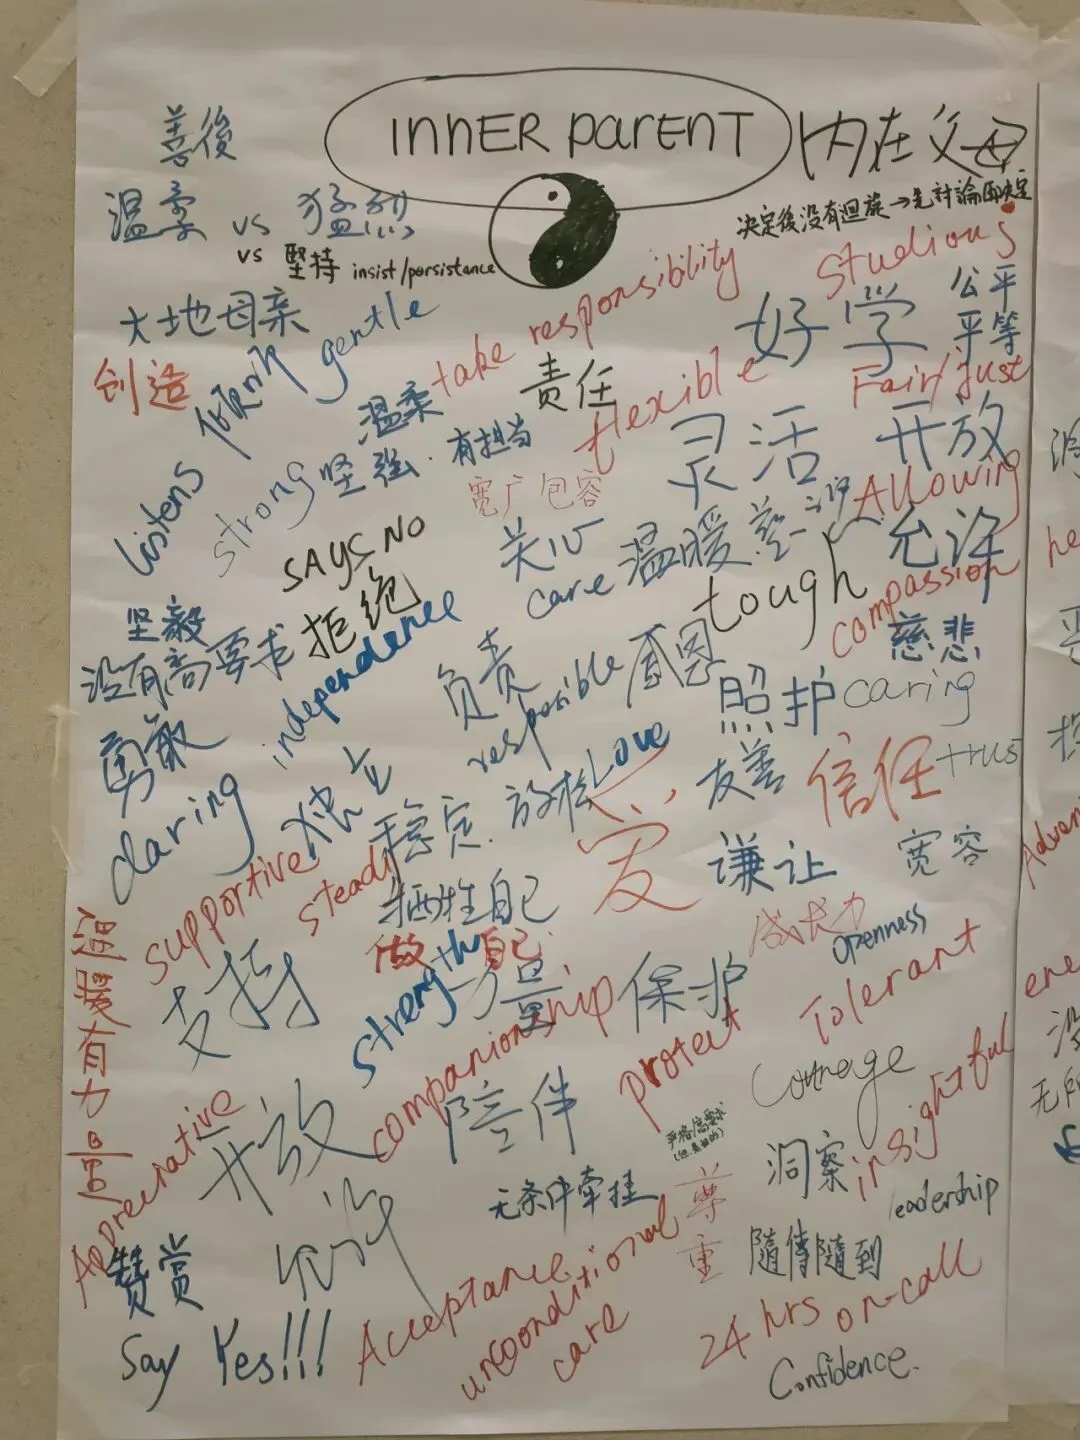 INNER PARENT 内在父母
善後
温柔 vs 猛烈
vs 堅持 insist/persistance
决定後没有迴旋→先討論再决定
studious
好学
公平
平等
Fair/Just
大地母亲
创造
listens 倾听
gentle
温柔
take responsibility
责任
有担当
flexible
灵活
开放
strong 坚强
宽广包容
Allowing
允许
SAYS NO
拒绝
关心
care
温暖
tough
compassion
慈悲
坚毅
没有高要求
independence
独立
负责
responsible
感恩
照护 caring
勇敢
daring
放松
Love
爱
友善
信任 trust
supportive
支持
steady
稳定
牺牲自己
做自己
谦让
宽容
温暖有力量
strength
力量
保护
protect
openness
Tolerant
companionship
陪伴
courage
insightful
洞察
Appreciative
赞赏
开放
允许
无条件牵挂
尊重
leadership
隨傳隨到
Say Yes!!!
Acceptance
unconditional care
24 hrs on-call
Confidence.